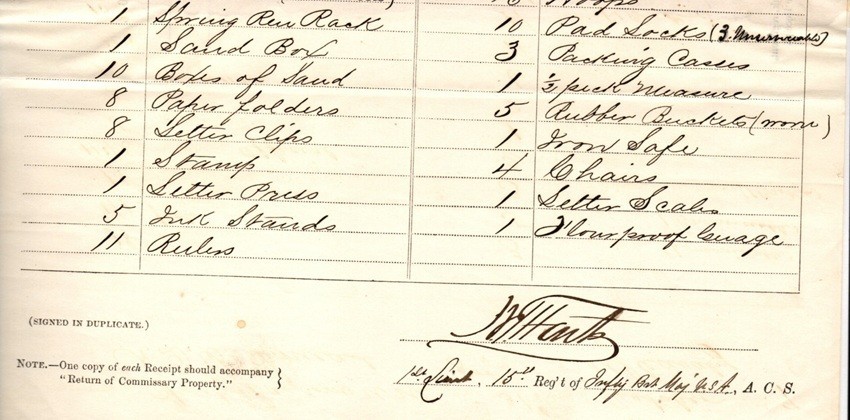 1 Spring Pen Rack
1 Sand Box
10 Boxes of Sand
8 Paper folders
8 Letter Clips
1 Stamp
1 Letter Press
5 Ink Stands
11 Rulers
Hoops
10 Pad Locks (3 Unserviceable)
3 Packing Cases
1 ½ peck Measure
5 Rubber Buckets (worn)
1 Iron Safe
4 Chairs
1 Letter Scales
1 Flour proof Guage
(SIGNED IN DUPLICATE.)
NOTE.—One copy of each Receipt should accompany
"Return of Commissary Property."
1st Lieut, 15th Reg't of Infty Bvt Maj U.S.A., A. C. S.